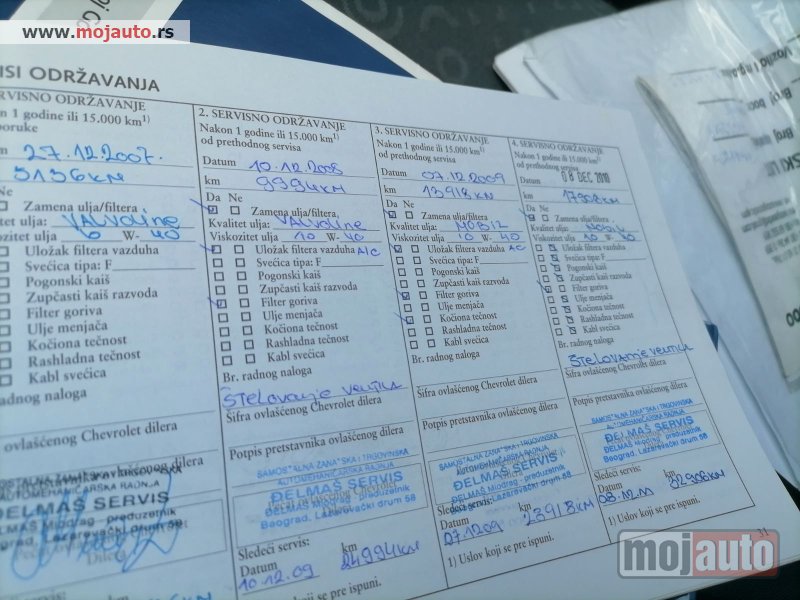 www.mojauto.rs
ISI ODRŽAVANJA
RVISNO ODRŽAVANJE
kon 1 godine ili 15.000 km1)
oruke
27.12.2007.
5136km
Ne
Zamena ulja/filtera,
litet ulja: VALVOLINE
kozitet ulja 10 W- 40
Uložak filtera vazduha
Svećica tipa: F
Pogonski kaiš
Zupčasti kaiš razvoda
Filter goriva
Ulje menjača
Kočiona tečnost
Rashladna tečnost
Kabl svećica
radnog naloga
ovlašćenog Chevrolet dilera
DELMAŠ SERVIS
2. SERVISNO ODRŽAVANJE
Nakon 1 godine ili 15.000 km1)
od prethodnog servisa
Datum 10.12.2008
km 9994km
Da Ne
Zamena ulja/filtera,
Kvalitet ulja: VALVOLINE
Viskozitet ulja 10 W- 40
Uložak filtera vazduha A/C
Svećica tipa: F
Pogonski kaiš
Zupčasti kaiš razvoda
Filter goriva
Ulje menjača
Kočiona tečnost
Rashladna tečnost
Kabl svećica
Br. radnog naloga
ŠTELOVANJE VENTILA
Šifra ovlašćenog Chevrolet dilera
Potpis pretstavnika ovlašćenog dilera
SAMOSTALNA ZANATSKA I TRGOVINSKA
AUTOMEHANIČARSKA RADNJA
ĐELMAŠ SERVIS
ĐELMAŠ Miodrag - preduzetnik
Beograd, Lazarevački drum 58
Sledeći servis:
Datum km
10.12.09 24994km
3. SERVISNO ODRŽAVANJE
Nakon 1 godine ili 15.000 km1)
od prethodnog servisa
Datum 07.12.2009
km 13918km
Da Ne
Zamena ulja/filtera,
Kvalitet ulja: MOBIL
Viskozitet ulja 10 W- 40
Uložak filtera vazduha AC
Svećica tipa: F
Pogonski kaiš
Zupčasti kaiš razvoda
Filter goriva
Ulje menjača
Kočiona tečnost
Rashladna tečnost
Kabl svećica
Br. radnog naloga
Šifra ovlašćenog Chevrolet dilera
Potpis pretstavnika ovlašćenog dilera
SAMOSTALNA ZANATSKA I TRGOVINSKA
AUTOMEHANIČARSKA RADNJA
ĐELMAŠ SERVIS
ĐELMAŠ Miodrag - preduzetnik
Beograd, Lazarevački drum 58
Sledeći servis:
Datum km
1) Uslov koji se pre ispuni.
4. SERVISNO ODRŽAVANJE
Nakon 1 godine ili 15.000 km1)
od prethodnog servisa
Datum 08 DEC 2010
km 17908km
Da Ne
Zamena ulja/filtera,
Kvalitet ulja:
Viskozitet ulja 10 W- 40
Uložak filtera vazduha
Svećica tipa: F
Pogonski kaiš
Zupčasti kaiš razvoda
Filter goriva
Ulje menjača
Kočiona tečnost
Rashladna tečnost
Kabl svećica
Br. radnog naloga
ŠTELOVANJE VENTILA
Šifra ovlašćenog Chevrolet dilera
Potpis pretstavnika ovlašćenog dilera
SAMOSTALNA ZANATSKA I TRGOVINSKA
AUTOMEHANIČARSKA RADNJA
ĐELMAŠ SERVIS
ĐELMAŠ Miodrag - preduzetnik
Beograd, Lazarevački drum 58
Sledeći servis:
Datum km
1) Uslov koji se pre ispuni.
31
mojauto